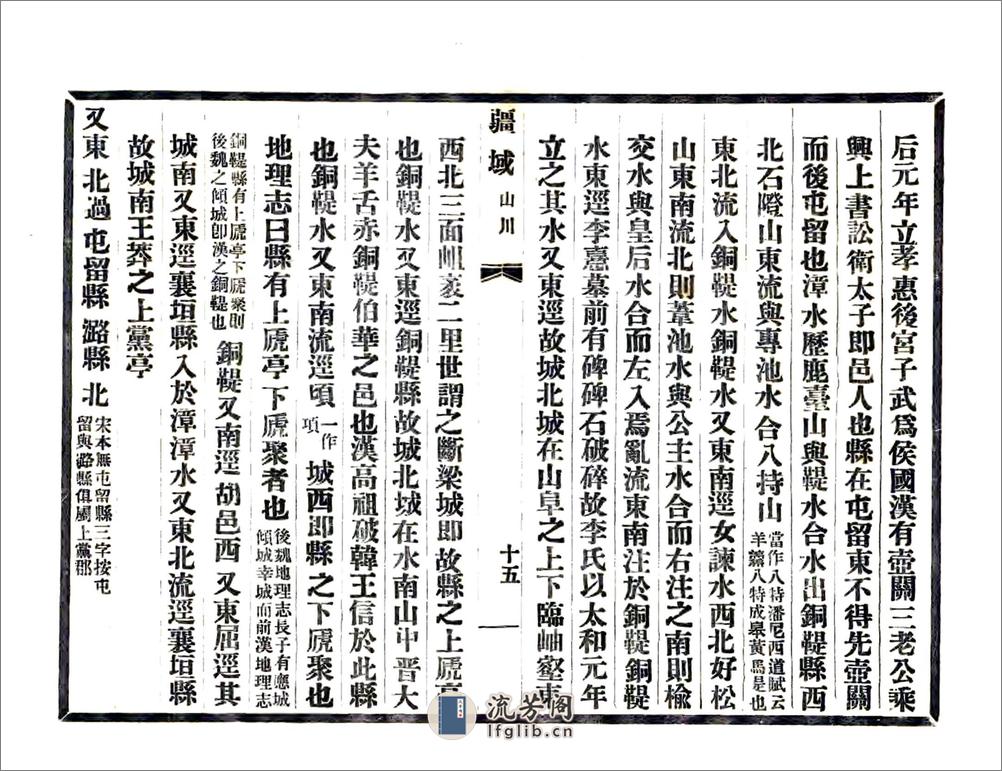 后元年立孝惠後宮子武爲侯國漢有壺關三老公乘
興上書訟衛太子即邑人也縣在屯留東不得先壺關
而後屯留也漳水歷鹿臺山與鞮水合水出銅鞮縣西
北石隥山東流與專池水合八持山
當作八特潘尼西道賦云
羊腸八特成皋黃馬是也
東北流入銅鞮水銅鞮水又東南逕女諫水西北好松
山東南流北則葦池水與公主水合而右注之南則楡
交水與皇后水合而左入焉亂流東南注於銅鞮銅鞮
水東逕李憙墓前有碑碑石破碎故李氏以太和元年
立之其水又東逕故城北城在山阜之上下臨岫壑東
疆域 山川 十五
西北三面岨袤二里世謂之斷梁城即故縣之上虒亭
也銅鞮水又東逕銅鞮縣故城北城在水南山中晋大
夫羊舌赤銅鞮伯華之邑也漢高祖破韓王信於此縣
也銅鞮水又東南流逕頃
一作
項
城西即縣之下虒聚也
地理志曰縣有上虒亭下虒聚者也
後魏地理志長子有應城
傾城幸城而前漢地理志
銅鞮縣有上虒亭下虒聚則
後魏之傾城卽漢之銅鞮也
銅鞮又南逕胡邑西又東屈逕其
城南又東逕襄垣縣入於漳漳水又東北流逕襄垣縣
故城南王莽之上黨亭
又東北過屯留縣潞縣北
宋本無屯留縣三字按屯
留與潞縣俱屬上黨郡
流芳阁
lfglib.cn